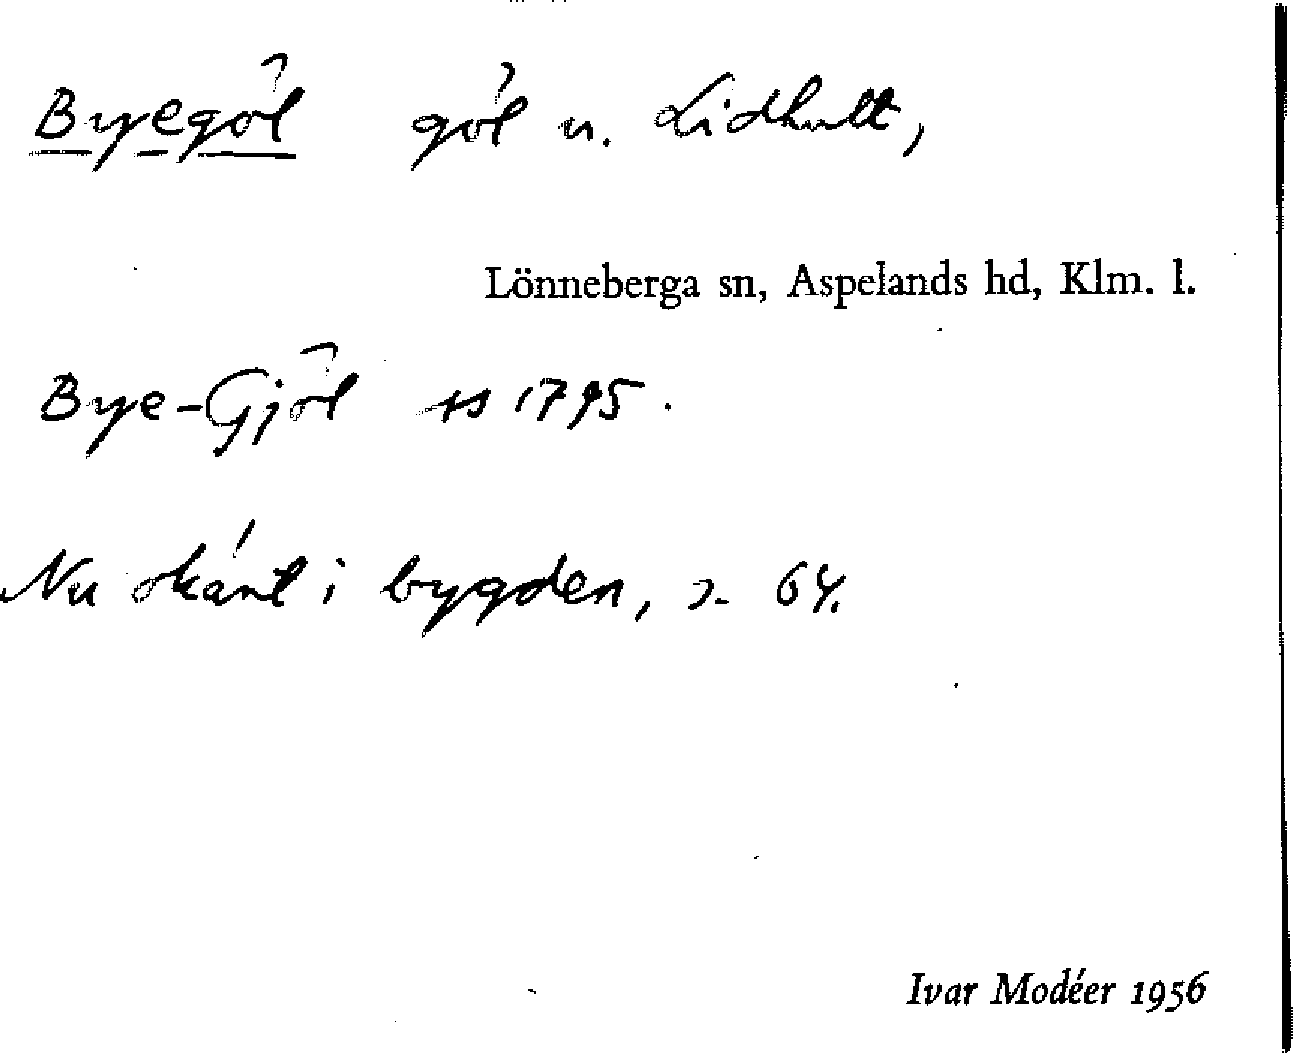 Byegöl göl n. Lidhult,
Lönneberga sn, Aspelands hd, Klm. l.
Bye-Gjöl ss 1795.
Nu okänt i bygden, 64.
Ivar Modéer 1956